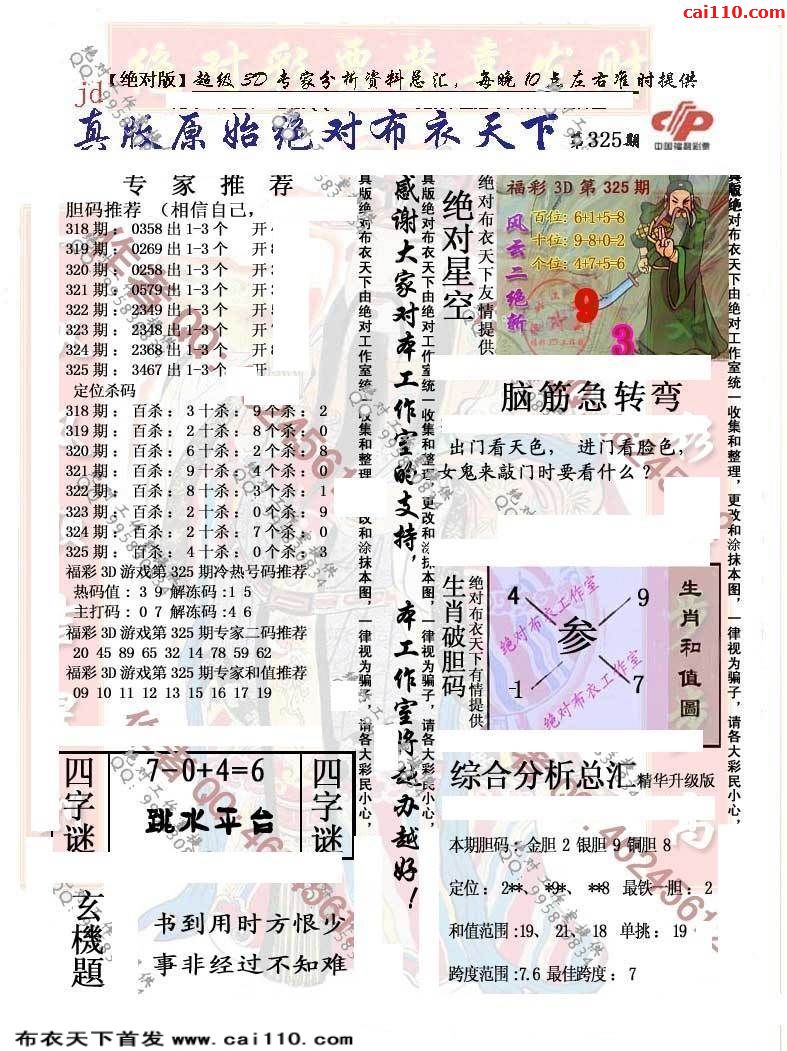 cai110.com
【绝对版】超级3D专家分析资料总汇，每晚10点左右准时提供
jd
真版原始绝对布衣天下 第325期
中国福利彩票
专家推荐
胆码推荐 （相信自己，
318期：0358出1-3个 开
319期：0269出1-3个 开
320期：0258出1-3个 开
321期：0579出1-3个 开
322期：2349出1-3个 开
323期：2348出1-3个 开
324期：2368出1-3个 开
325期：3467出1-3个 开
定位杀码
318期：百杀：3十杀：9个杀：2
319期：百杀：2十杀：8个杀：0
320期：百杀：6十杀：2个杀：8
321期：百杀：9十杀：4个杀：0
322期：百杀：8十杀：3个杀：1
323期：百杀：2十杀：0个杀：9
324期：百杀：2十杀：7个杀：0
325期：百杀：4十杀：0个杀：3
福彩3D游戏第325期冷热号码推荐
热码值：3 9解冻码:1 5
主打码：0 7解冻码:4 6
福彩3D游戏第325期专家二码推荐
20 45 89 65 32 14 78 59 62
福彩3D游戏第325期专家和值推荐
09 10 11 12 13 15 16 17 19
四字谜
7-0+4=6
跳水平台
四字谜
玄機題
书到用时方恨少
事非经过不知难
真版绝对布衣天下由绝对工作室统一收集和整理
改和涂抹本图，一律视为骗子，请各大彩民小心，
感谢大家对本工作室的支持，本工作室将越办越好！
真版绝对布衣天下由绝对工作室统一收集和整理，更改和涂抹本图，一律视为骗子，请各大彩民小心，
绝对星空
绝对布衣天下友情提供
福彩3D第325期
风云二绝斩
百位:6+1+5=8
十位:9-8+0=2
个位:4+7+5=6
9
3
脑筋急转弯
出门看天色， 进门看脸色，
女鬼来敲门时要看什么？
生肖破胆码
绝对布衣天下有情提供
4
9
参
-1
7
绝对布衣工作室
绝对布衣工作室
生肖和值圖
综合分析总汇 精华升级版
本期胆码：金胆2 银胆9铜胆8
定位：2**、 *9*、 **8 最铁一胆：2
和值范围:19、 21、 18 单挑：19
跨度范围:7.6 最佳跨度：7
真版绝对布衣天下由绝对工作室统一收集和整理，更改和涂抹本图，一律视为骗子，请各大彩民小心，
布衣天下首发 www.cai110.com